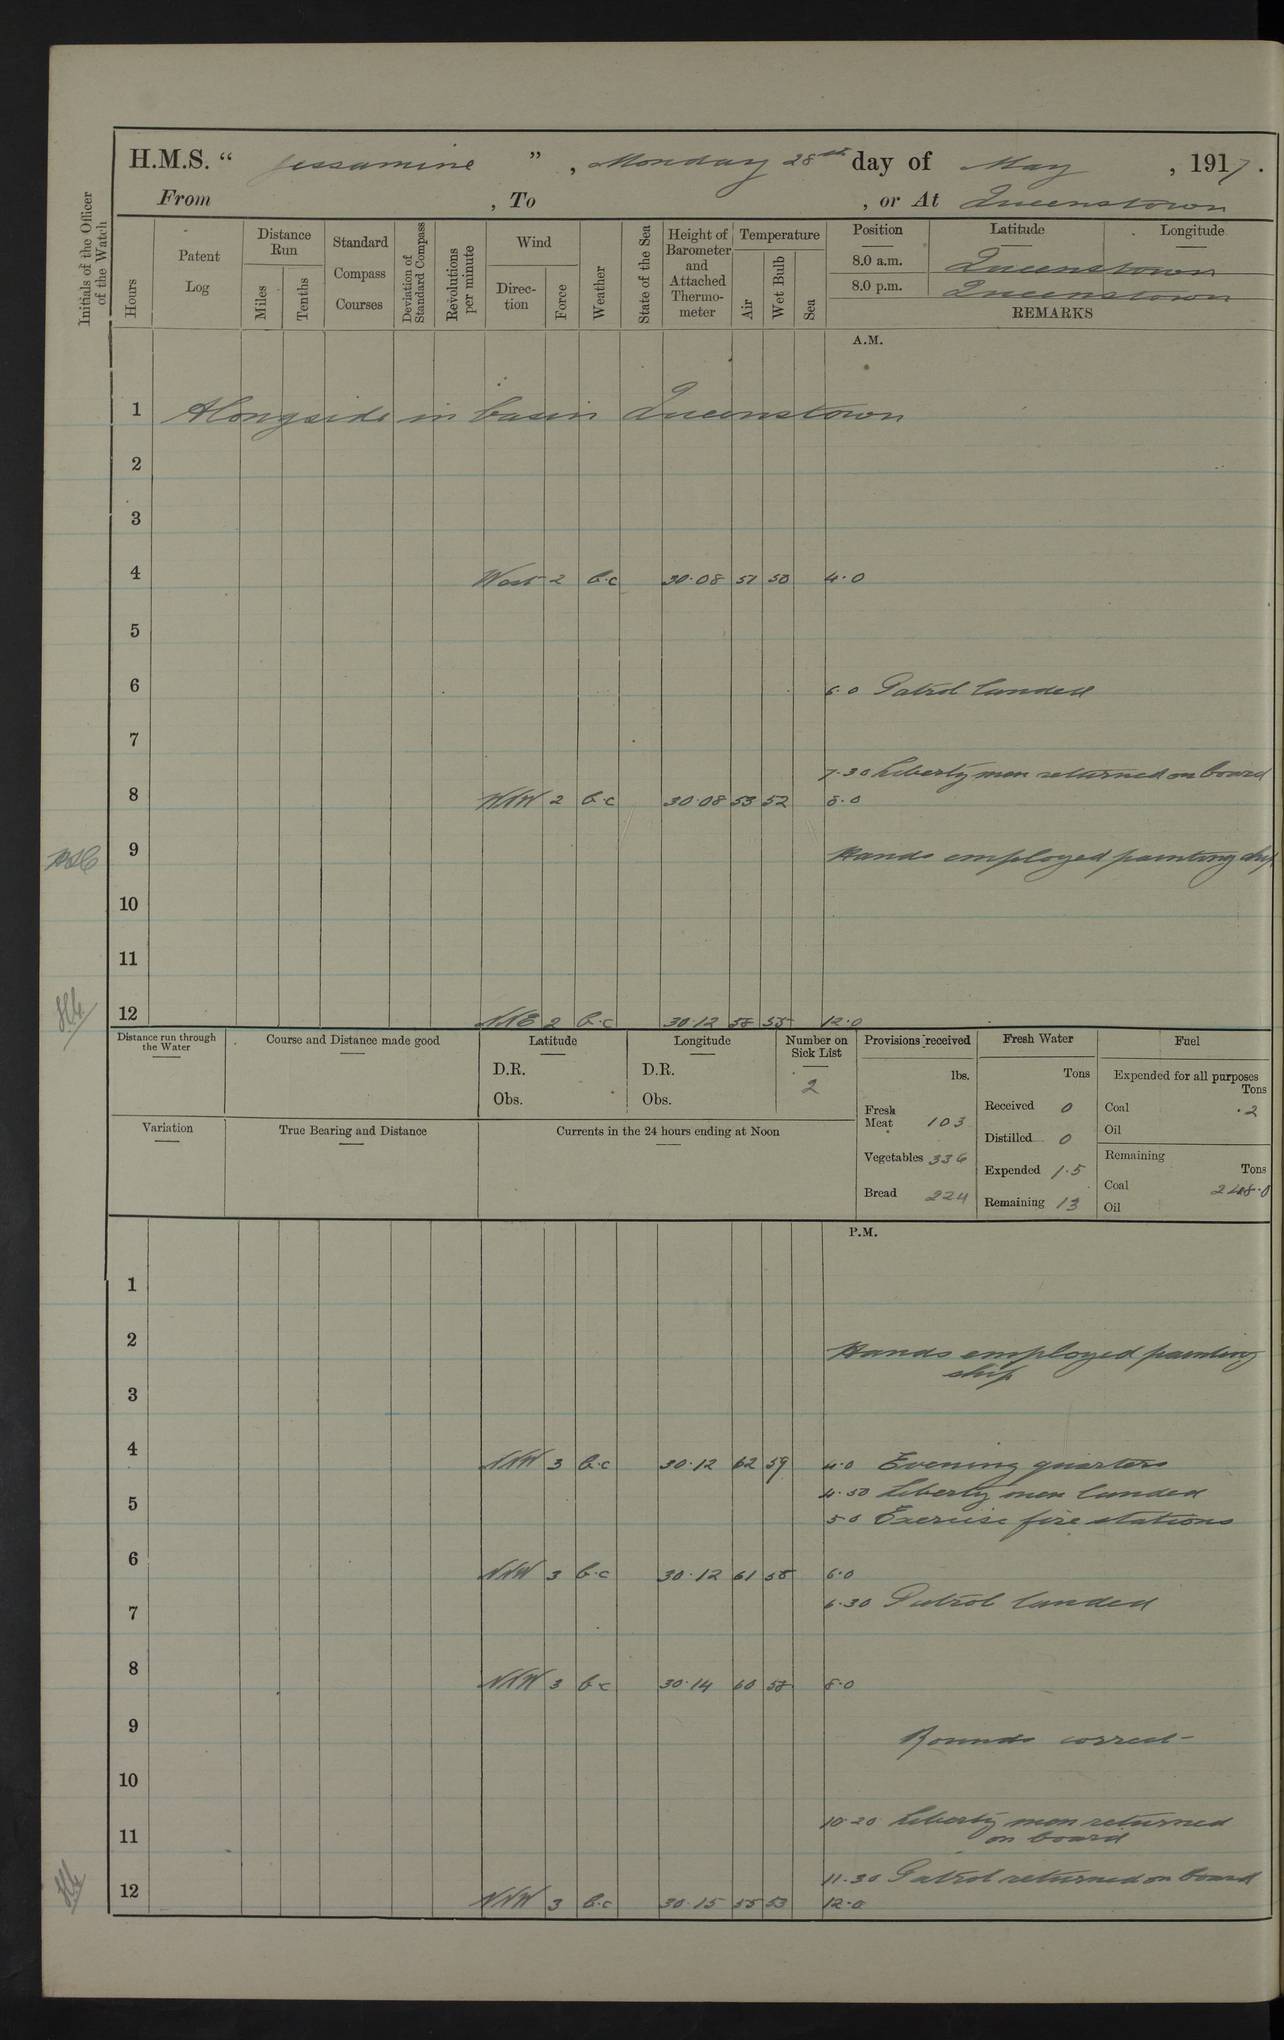 H.M.S. “ Jessamine ” , Monday 28th day of May , 1917 .
From , To , or At Queenstown
Initials of the Officer of the Watch
Hours
Patent Log
Distance Run
Miles
Tenths
Standard Compass Courses
Deviation of Standard Compass
Revolutions per minute
Wind
Direc-tion
Force
Weather
State of the Sea
Height of Barometer and Attached Thermo-meter
Temperature
Air
Wet Bulb
Sea
Position Latitude Longitude
8.0 a.m. Queenstown
8.0 p.m. Queenstown
REMARKS
A.M.
1 Alongside in basin Queenstown
2
3
4 West 2 b.c 30.08 51 50 4.0
5
6 6.0 Patrol landed
7
7.30 Liberty men returned on board
8 NNW 2 b.c 30.08 53 52 8.0
9 Hands employed painting ship
10
11
12 NNE 2 b.c 30.12 58 55 12.0
Distance run through the Water
Course and Distance made good
Latitude
D.R.
Obs.
Longitude
D.R.
Obs.
Number on Sick List
2
Provisions received
lbs.
Fresh Meat 103
Vegetables 336
Bread 224
Fresh Water
Tons
Received 0
Distilled 0
Expended 1.5
Remaining 13
Fuel
Expended for all purposes
Tons
Coal .2
Oil
Remaining
Tons
Coal
Oil
Variation
True Bearing and Distance
Currents in the 24 hours ending at Noon
P.M.
1
2 Hands employed painting
ship
3
4 NNW 3 b.c 30.12 62 59 4.0 Evening quarters
4.50 Liberty men landed
5 5 0 Exercise fire stations
6 NNW 3 b.c 30.12 61 58 6.0
6.30 Patrol landed
7
8 NNW 3 b.c 30.14 60 58 8.0
9 Rounds correct
10
10.20 Liberty men returned
11 on board
11.30 Patrol returned on board
12 NNW 3 b.c 30.15 55 53 12.0